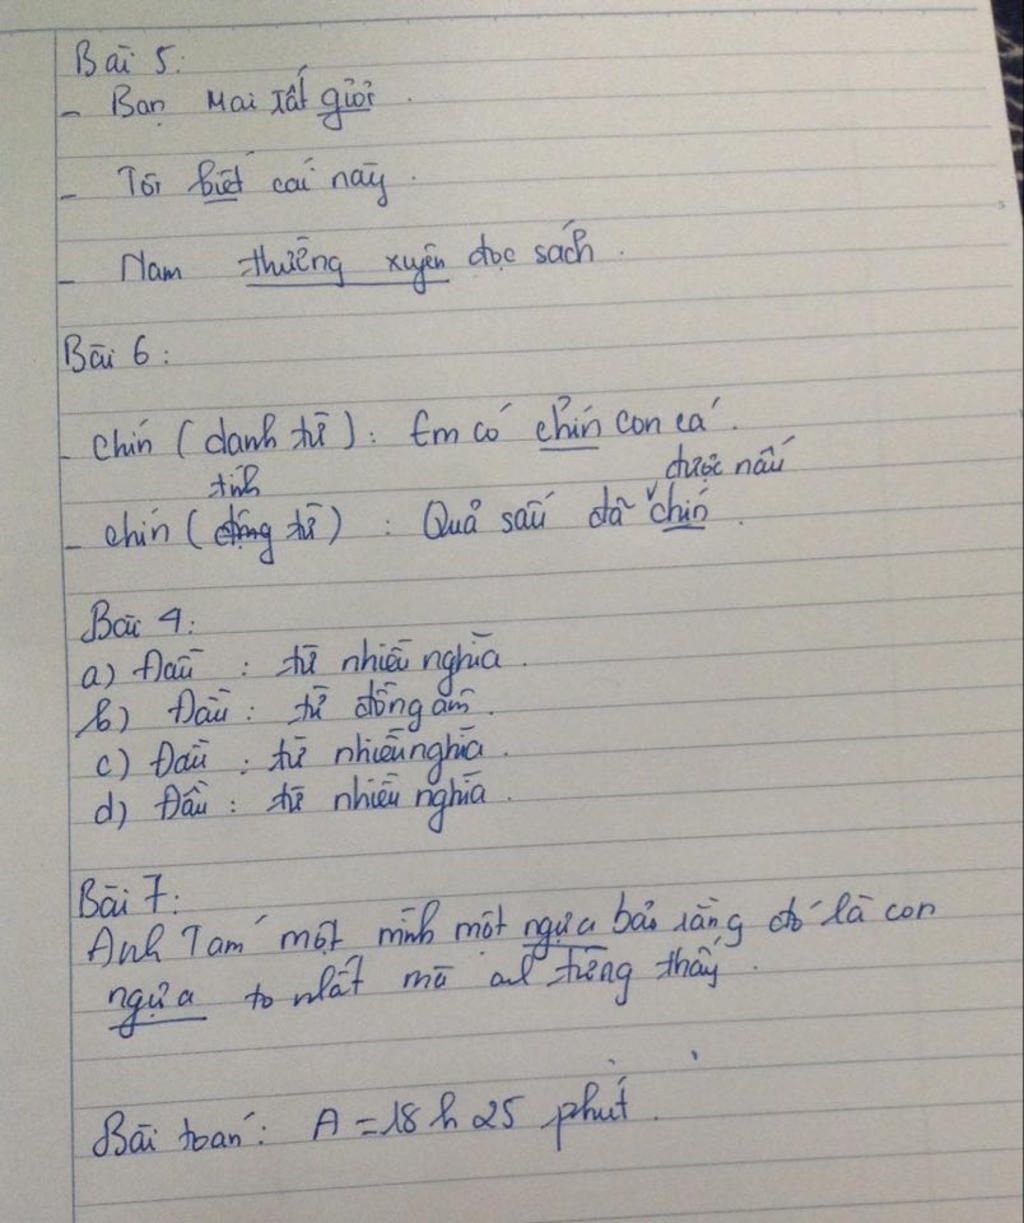 Bài 5:
- Bạn Mai rất giỏi.
- Tôi biết cái này.
- Nam thường xuyên đọc sách.
Bài 6:
- Chín (danh từ): Em có chín con cá.
tính được nấu
- chín (động từ): Quả sấu đã chín.
Bài 4:
a) Đầu: từ nhiều nghĩa.
b) Đầu: từ đồng âm.
c) Đầu: từ nhiều nghĩa.
d) Đầu: từ nhiều nghĩa.
Bài 7:
Anh Tám một mình một ngựa bảo rằng đó là con
ngựa to nhất mà anh từng thấy.
Bài toán: A = 18 h 25 phút.